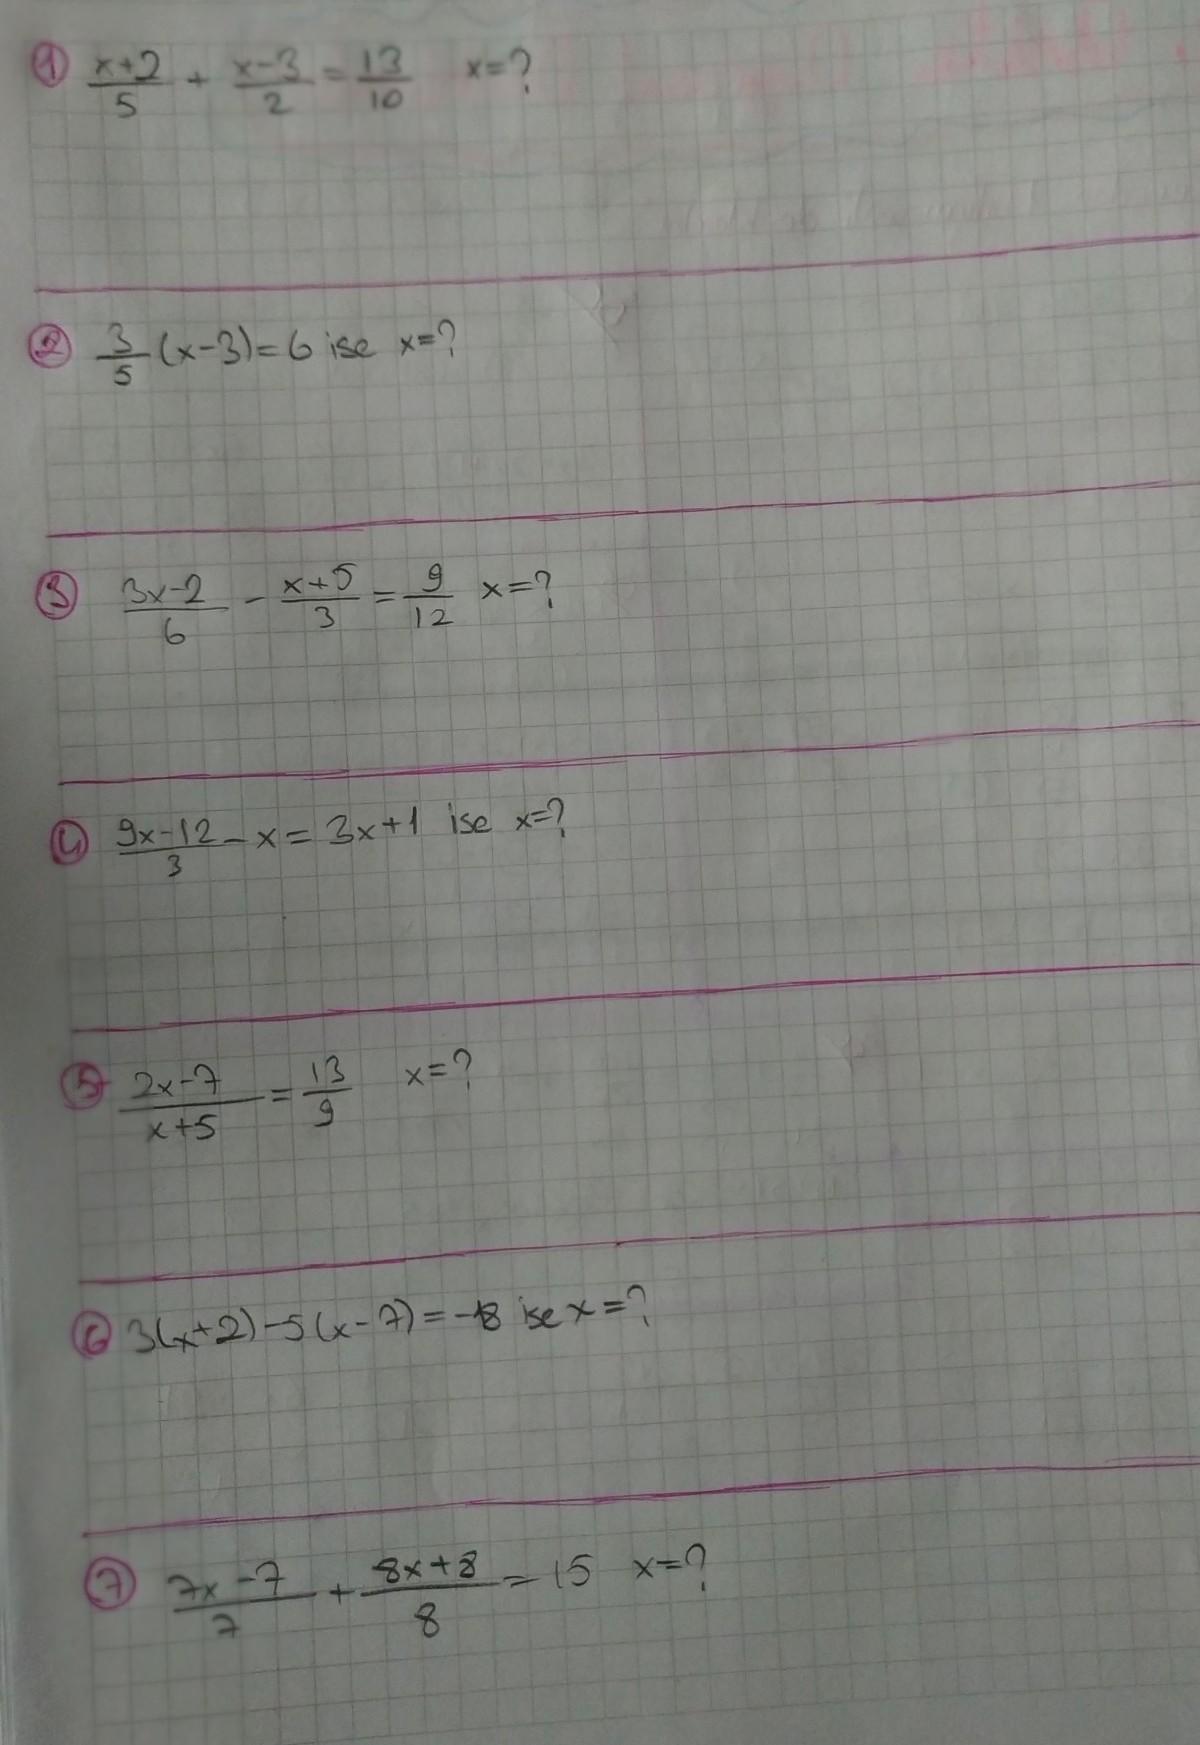 1 (x+2)/5 + (x-3)/2 = 13/10 x=?
2 3/5 (x-3)=6 ise x=?
3 (3x-2)/6 - (x+5)/3 = 9/12 x=?
4 (9x-12)/3 - x = 3x+1 ise x=?
5 (2x-7)/(x+5) = 13/9 x=?
6 3(x+2)-5(x-7)=-18 ise x=?
7 (7x-7)/7 + (8x+8)/8 = 15 x=?